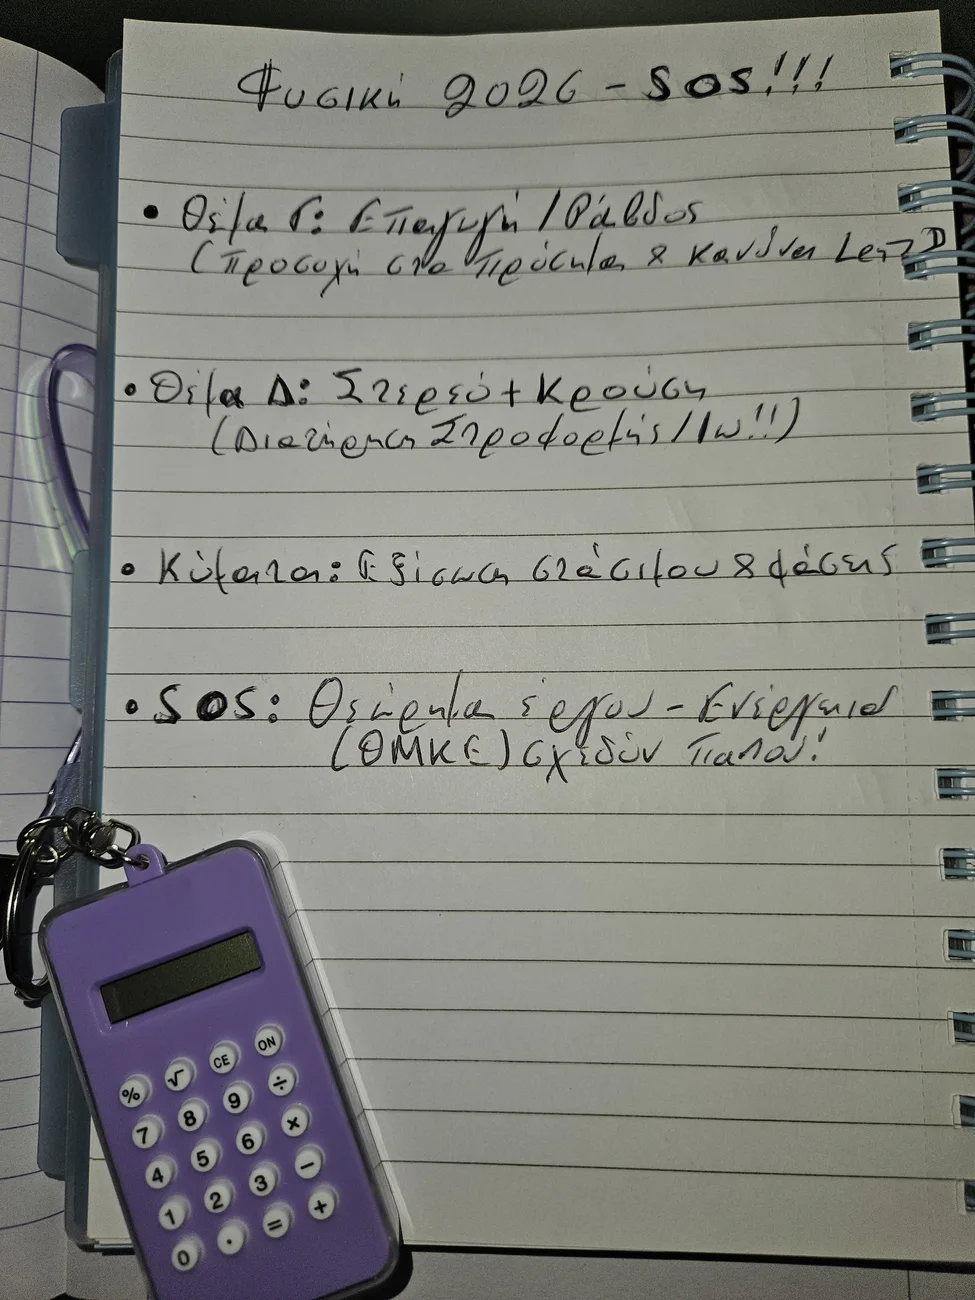 Φυσική 2026 - SOS!!!
• Θέμα Γ: Επαγωγή / Ράβδος
(Προσοχή στα πρόσημα & κανόνα Lenz)
• Θέμα Δ: Στερεό + Κρούση
(Διατήρηση Στροφορμής / Ιω!!)
• Κύματα: Εξίσωση στάσιμου & φάσης
• SOS: Θεώρημα έργου - Ενέργεια
(ΘΜΚΕ) σχεδόν παντού!
% √ CE ON
7 8 9 ÷
4 5 6 ×
1 2 3 −
0 . = +